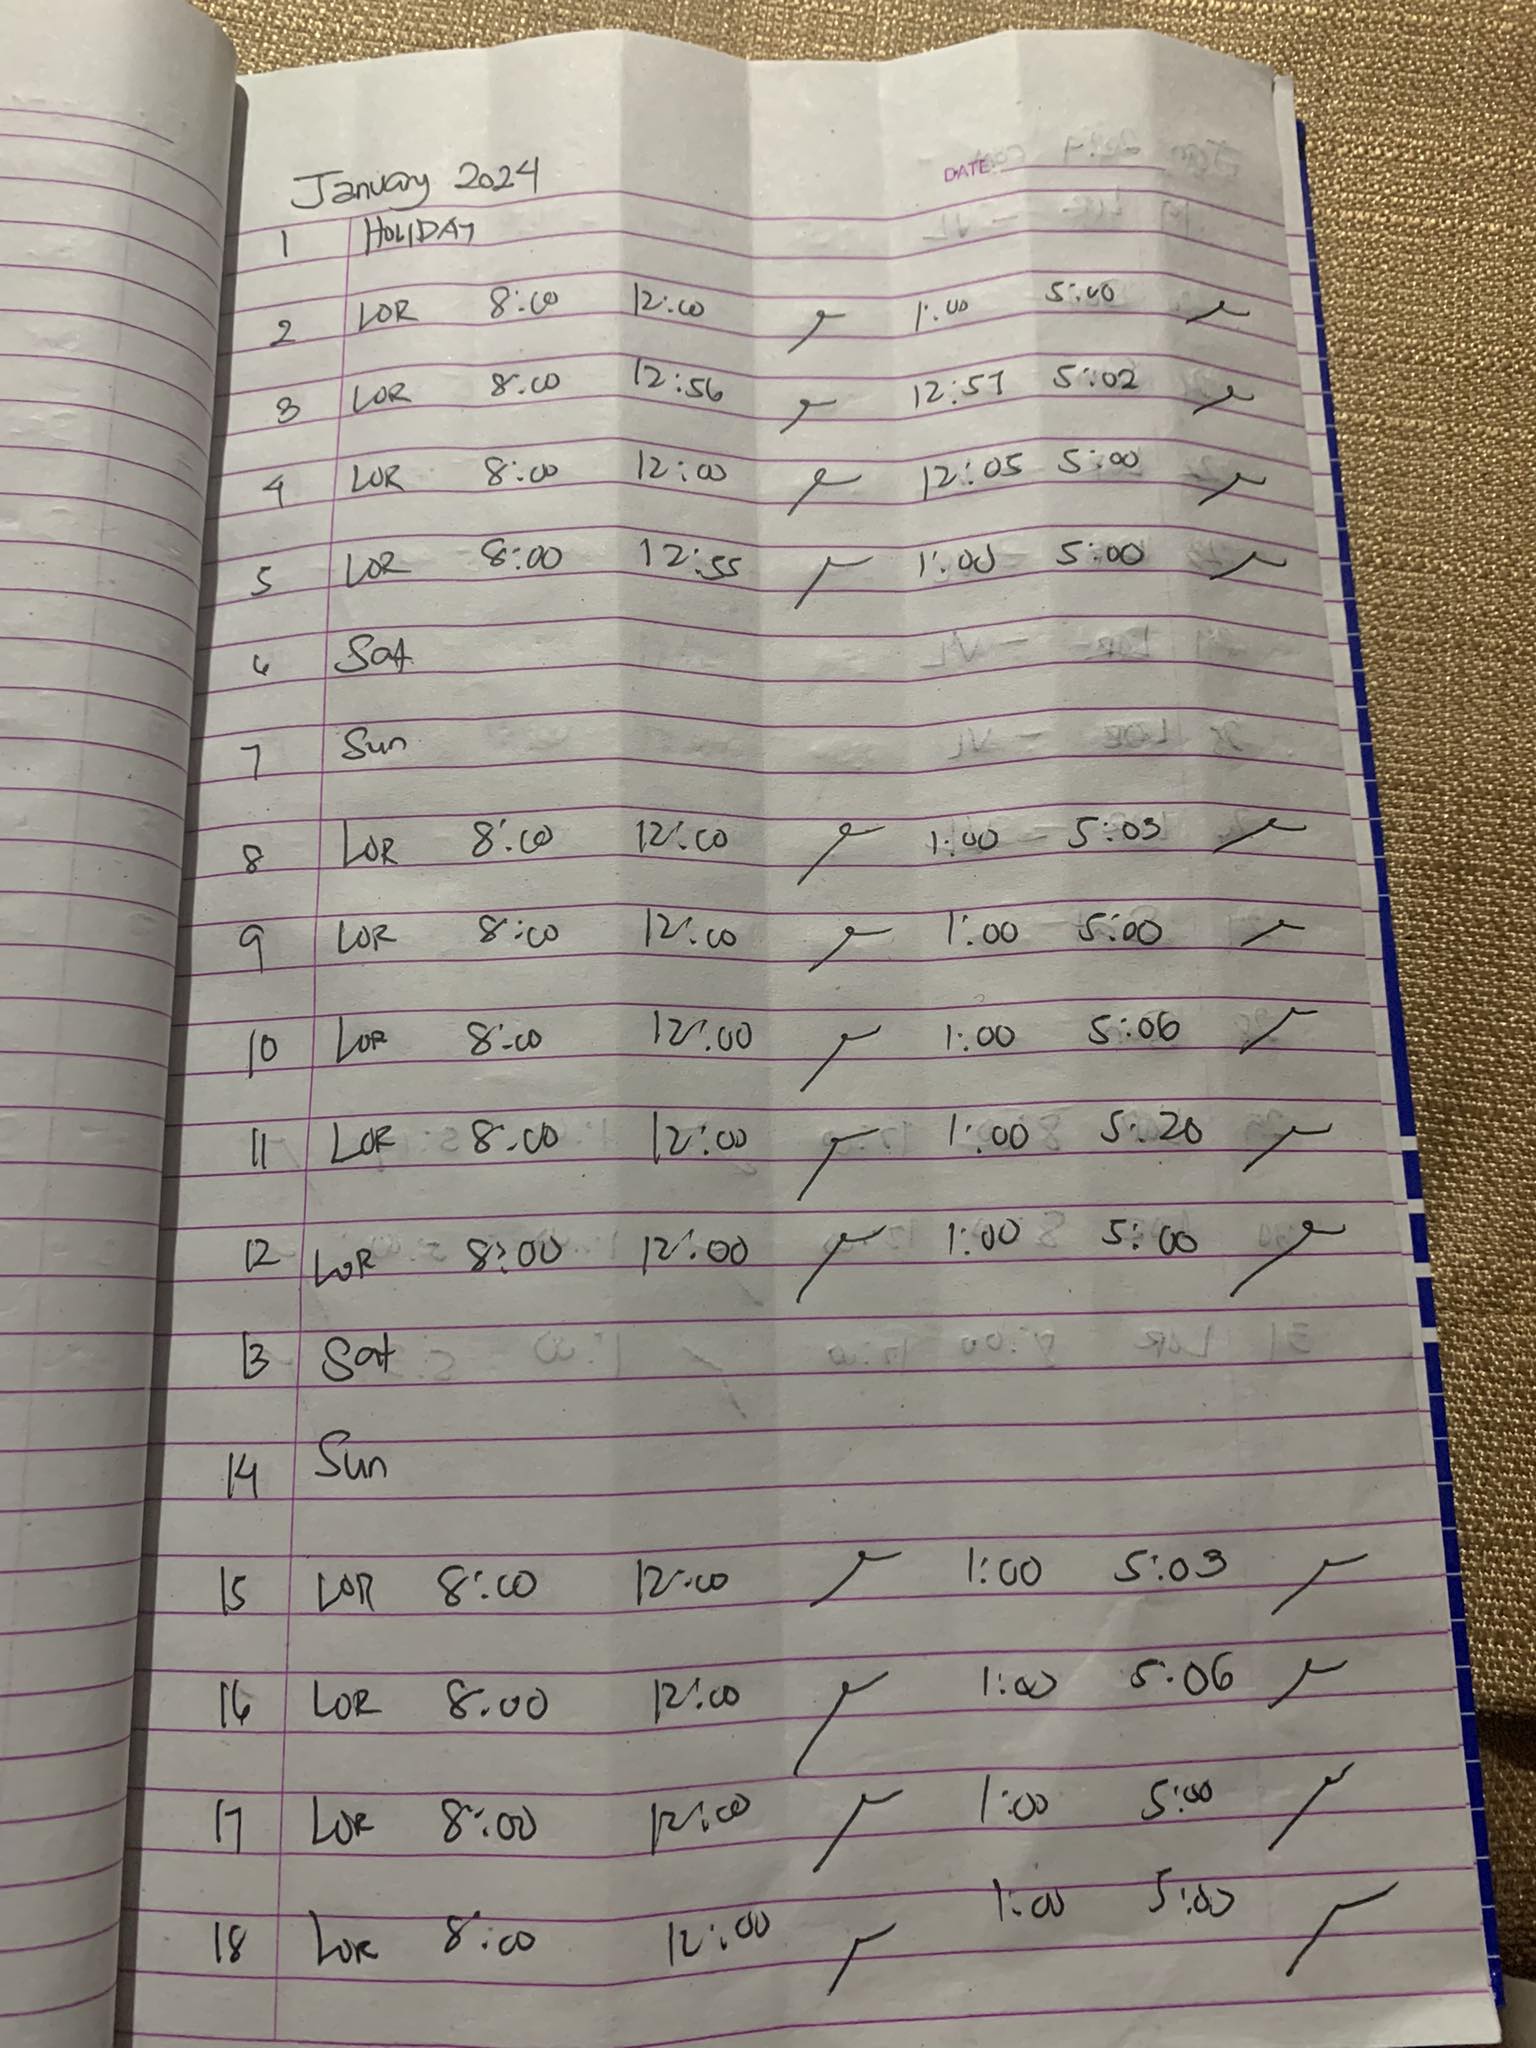 January 2024
DATE:
1 HOLIDAY
2 LOR 8:00 12:00 1:00 5:00
3 LOR 8:00 12:56 12:57 5:02
4 LOR 8:00 12:00 12:05 5:00
5 LOR 8:00 12:55 1:00 5:00
6 Sat
7 Sun
8 LOR 8:00 12:00 1:00 - 5:03
9 LOR 8:00 12:00 1:00 5:00
10 LOR 8:00 12:00 1:00 5:06
11 LOR 8:00 12:00 1:00 5:20
12 LOR 8:00 12:00 1:00 5:00
13 Sat
14 Sun
15 LOR 8:00 12:00 1:00 5:03
16 LOR 8:00 12:00 1:00 5:06
17 LOR 8:00 12:00 1:00 5:00
18 LOR 8:00 12:00 1:00 5:00